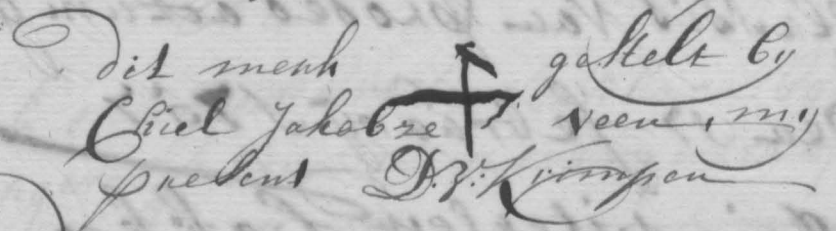 dit merk gestelt by
Chiel Jakobze Veen, my
present D. V: Krimpen